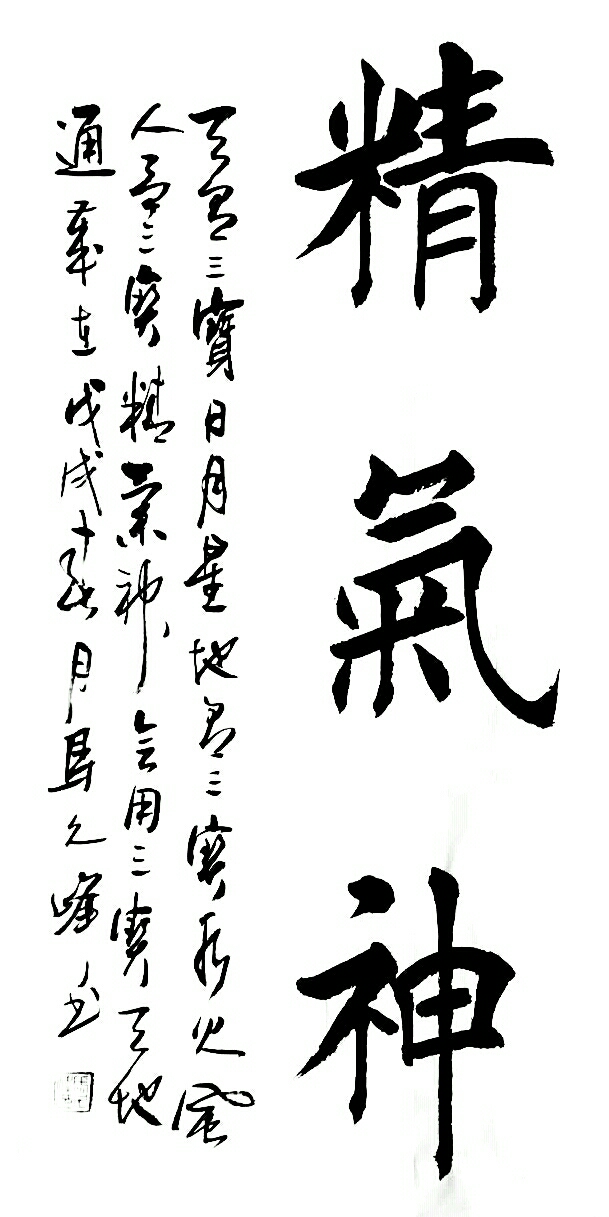 精氣神
天有三寶日月星地有三寶水火風
人有三寶精氣神会用三寶天地
通歲在戊戌十月馬峰書